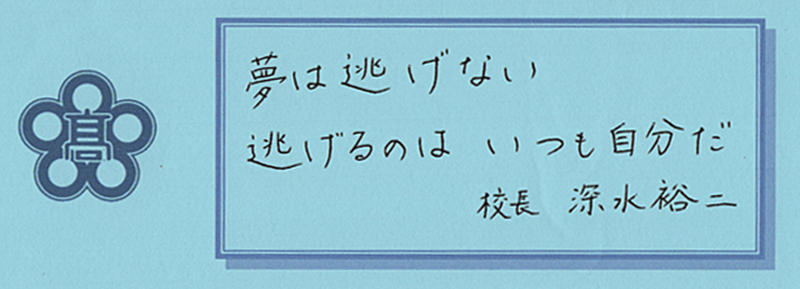 高
夢は逃げない
逃げるのは いつも自分だ
校長 深水裕二